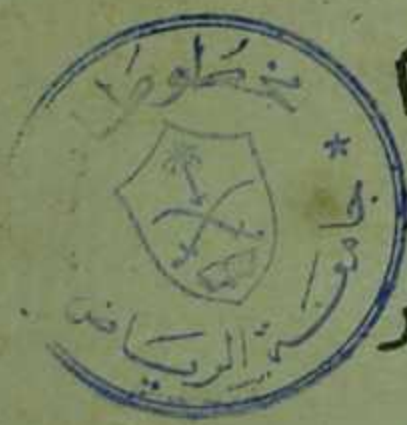 مخطوطات
*
جامعة الرياض